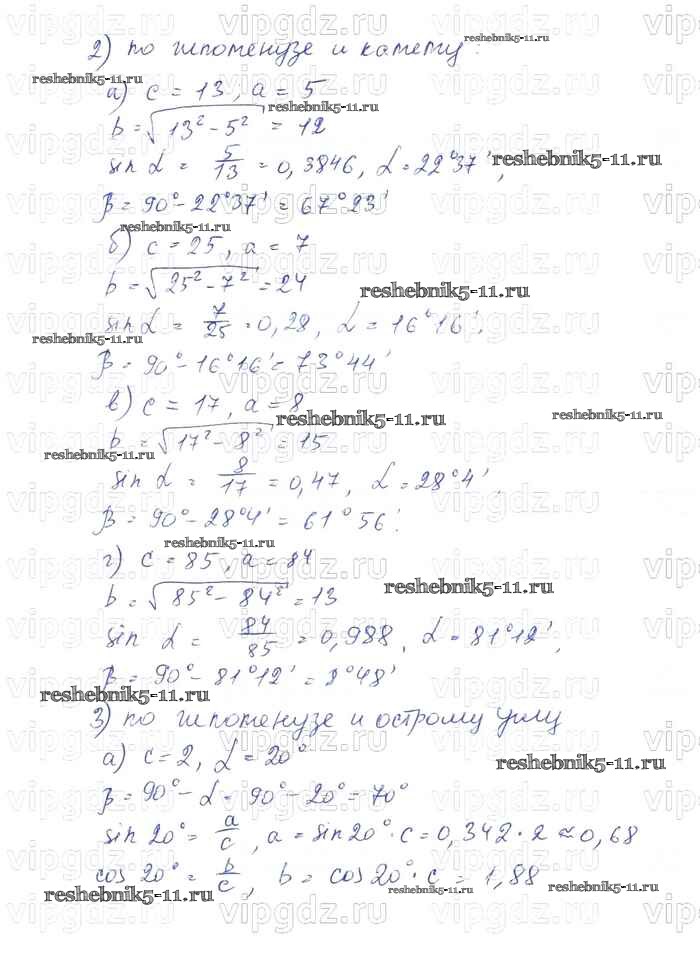 2) по гипотенузе и катету:
а) c = 13, a = 5
b = √13² - 5² = 12
sin α = 5/13 = 0,3846, α = 22°37',
β = 90° - 22°37' = 67°23'
б) c = 25, a = 7
b = √25² - 7² = 24
sin α = 7/25 = 0,28, α = 16°16'.
β = 90° - 16°16' = 73°44'
в) c = 17, a = 8
b = √17² - 8² = 15
sin α = 8/17 = 0,47, α = 28°4'.
β = 90° - 28°4' = 61°56'.
г) c = 85, a = 84
b = √85² - 84² = 13
sin α = 84/85 = 0,988, α = 81°12',
β = 90° - 81°12' = 8°48'
3) по гипотенузе и острому углу
а) c = 2, α = 20°
β = 90° - α = 90° - 20° = 70°
sin 20° = a/c, a = sin 20° · c = 0,342 · 2 ≈ 0,68
cos 20° = b/c, b = cos 20° · c = 1,88
reshebnik5-11.ru
vipgdz.ru